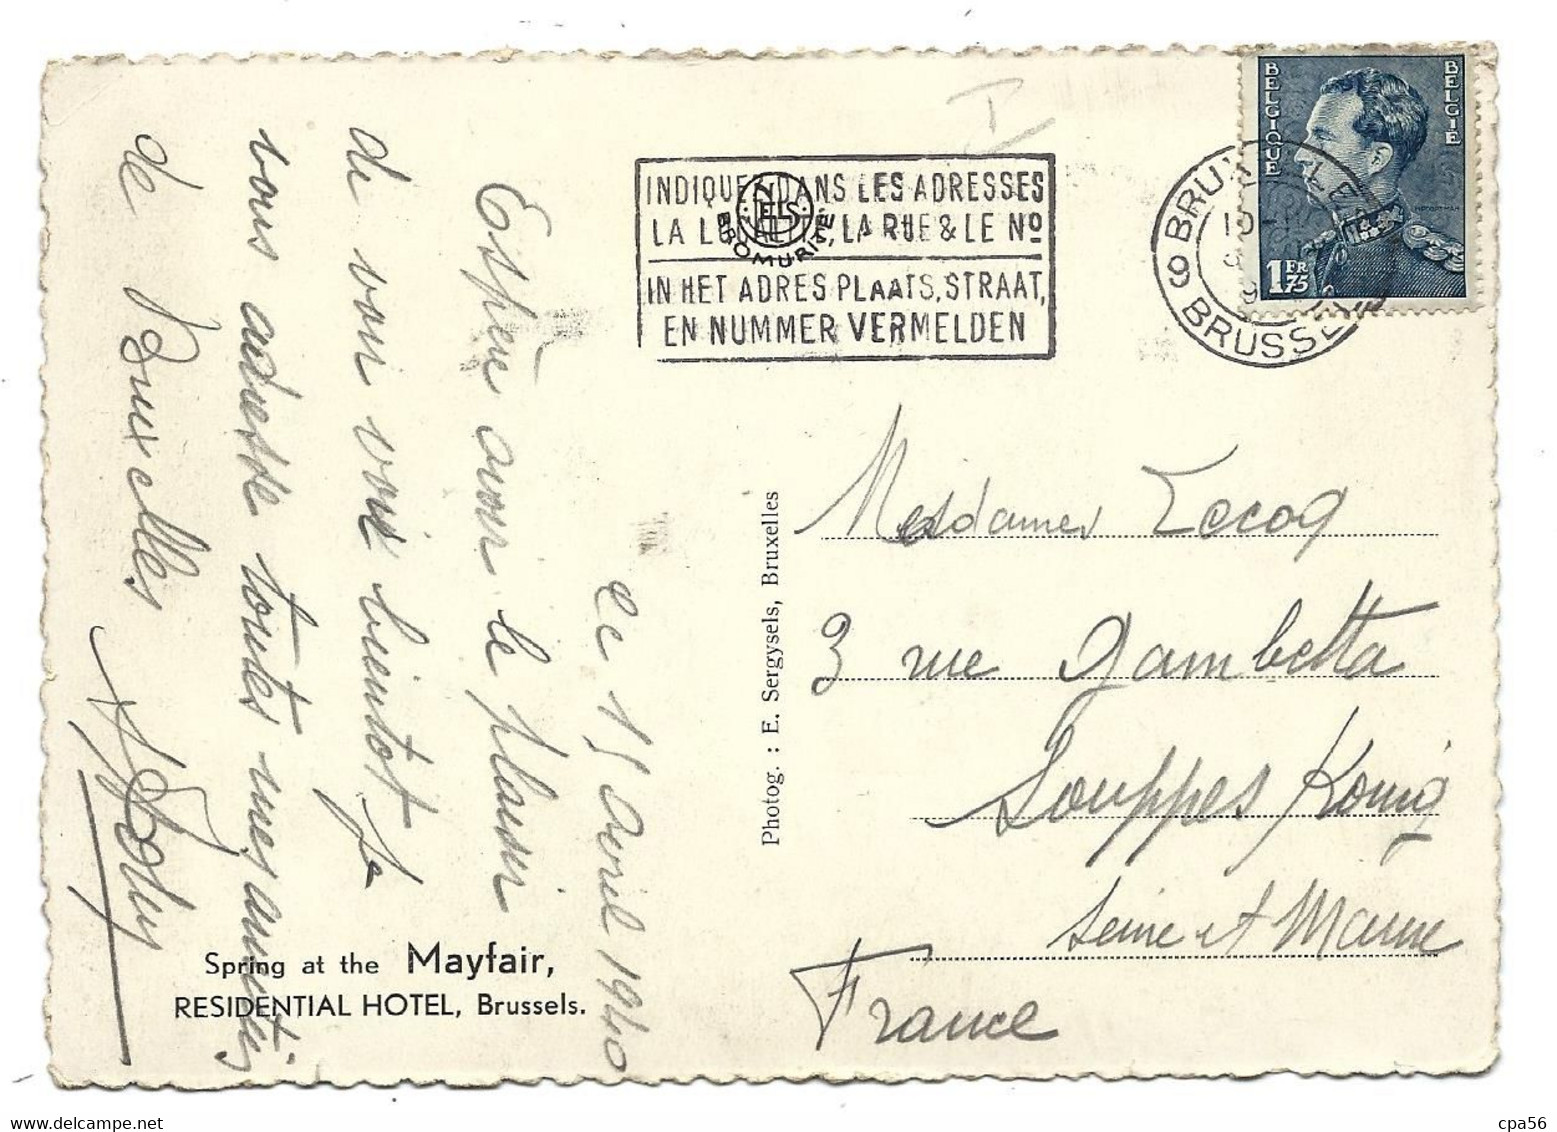 le 15 avril 1940
Espère avoir le plaisir
de voir bientôt je
vous adresse toutes mes amitiés
de Bruxelles
Spring at the Mayfair,
RESIDENTIAL HOTEL, Brussels.
Photog. : E. Sergysels, Bruxelles
INDIQUEZ DANS LES ADRESSES
LA LOCALITE, LA RUE & LE Nº
IN HET ADRES PLAATS, STRAAT,
EN NUMMER VERMELDEN
NELS
BROMURITE
BELGIQUE
BELGIE
1 FR 75
BRUX
BRUSSEL
Mesdames Lecoq
3 rue Gambetta
Souppes
Seine et Marne
France
cpa56
www.delcampe.net